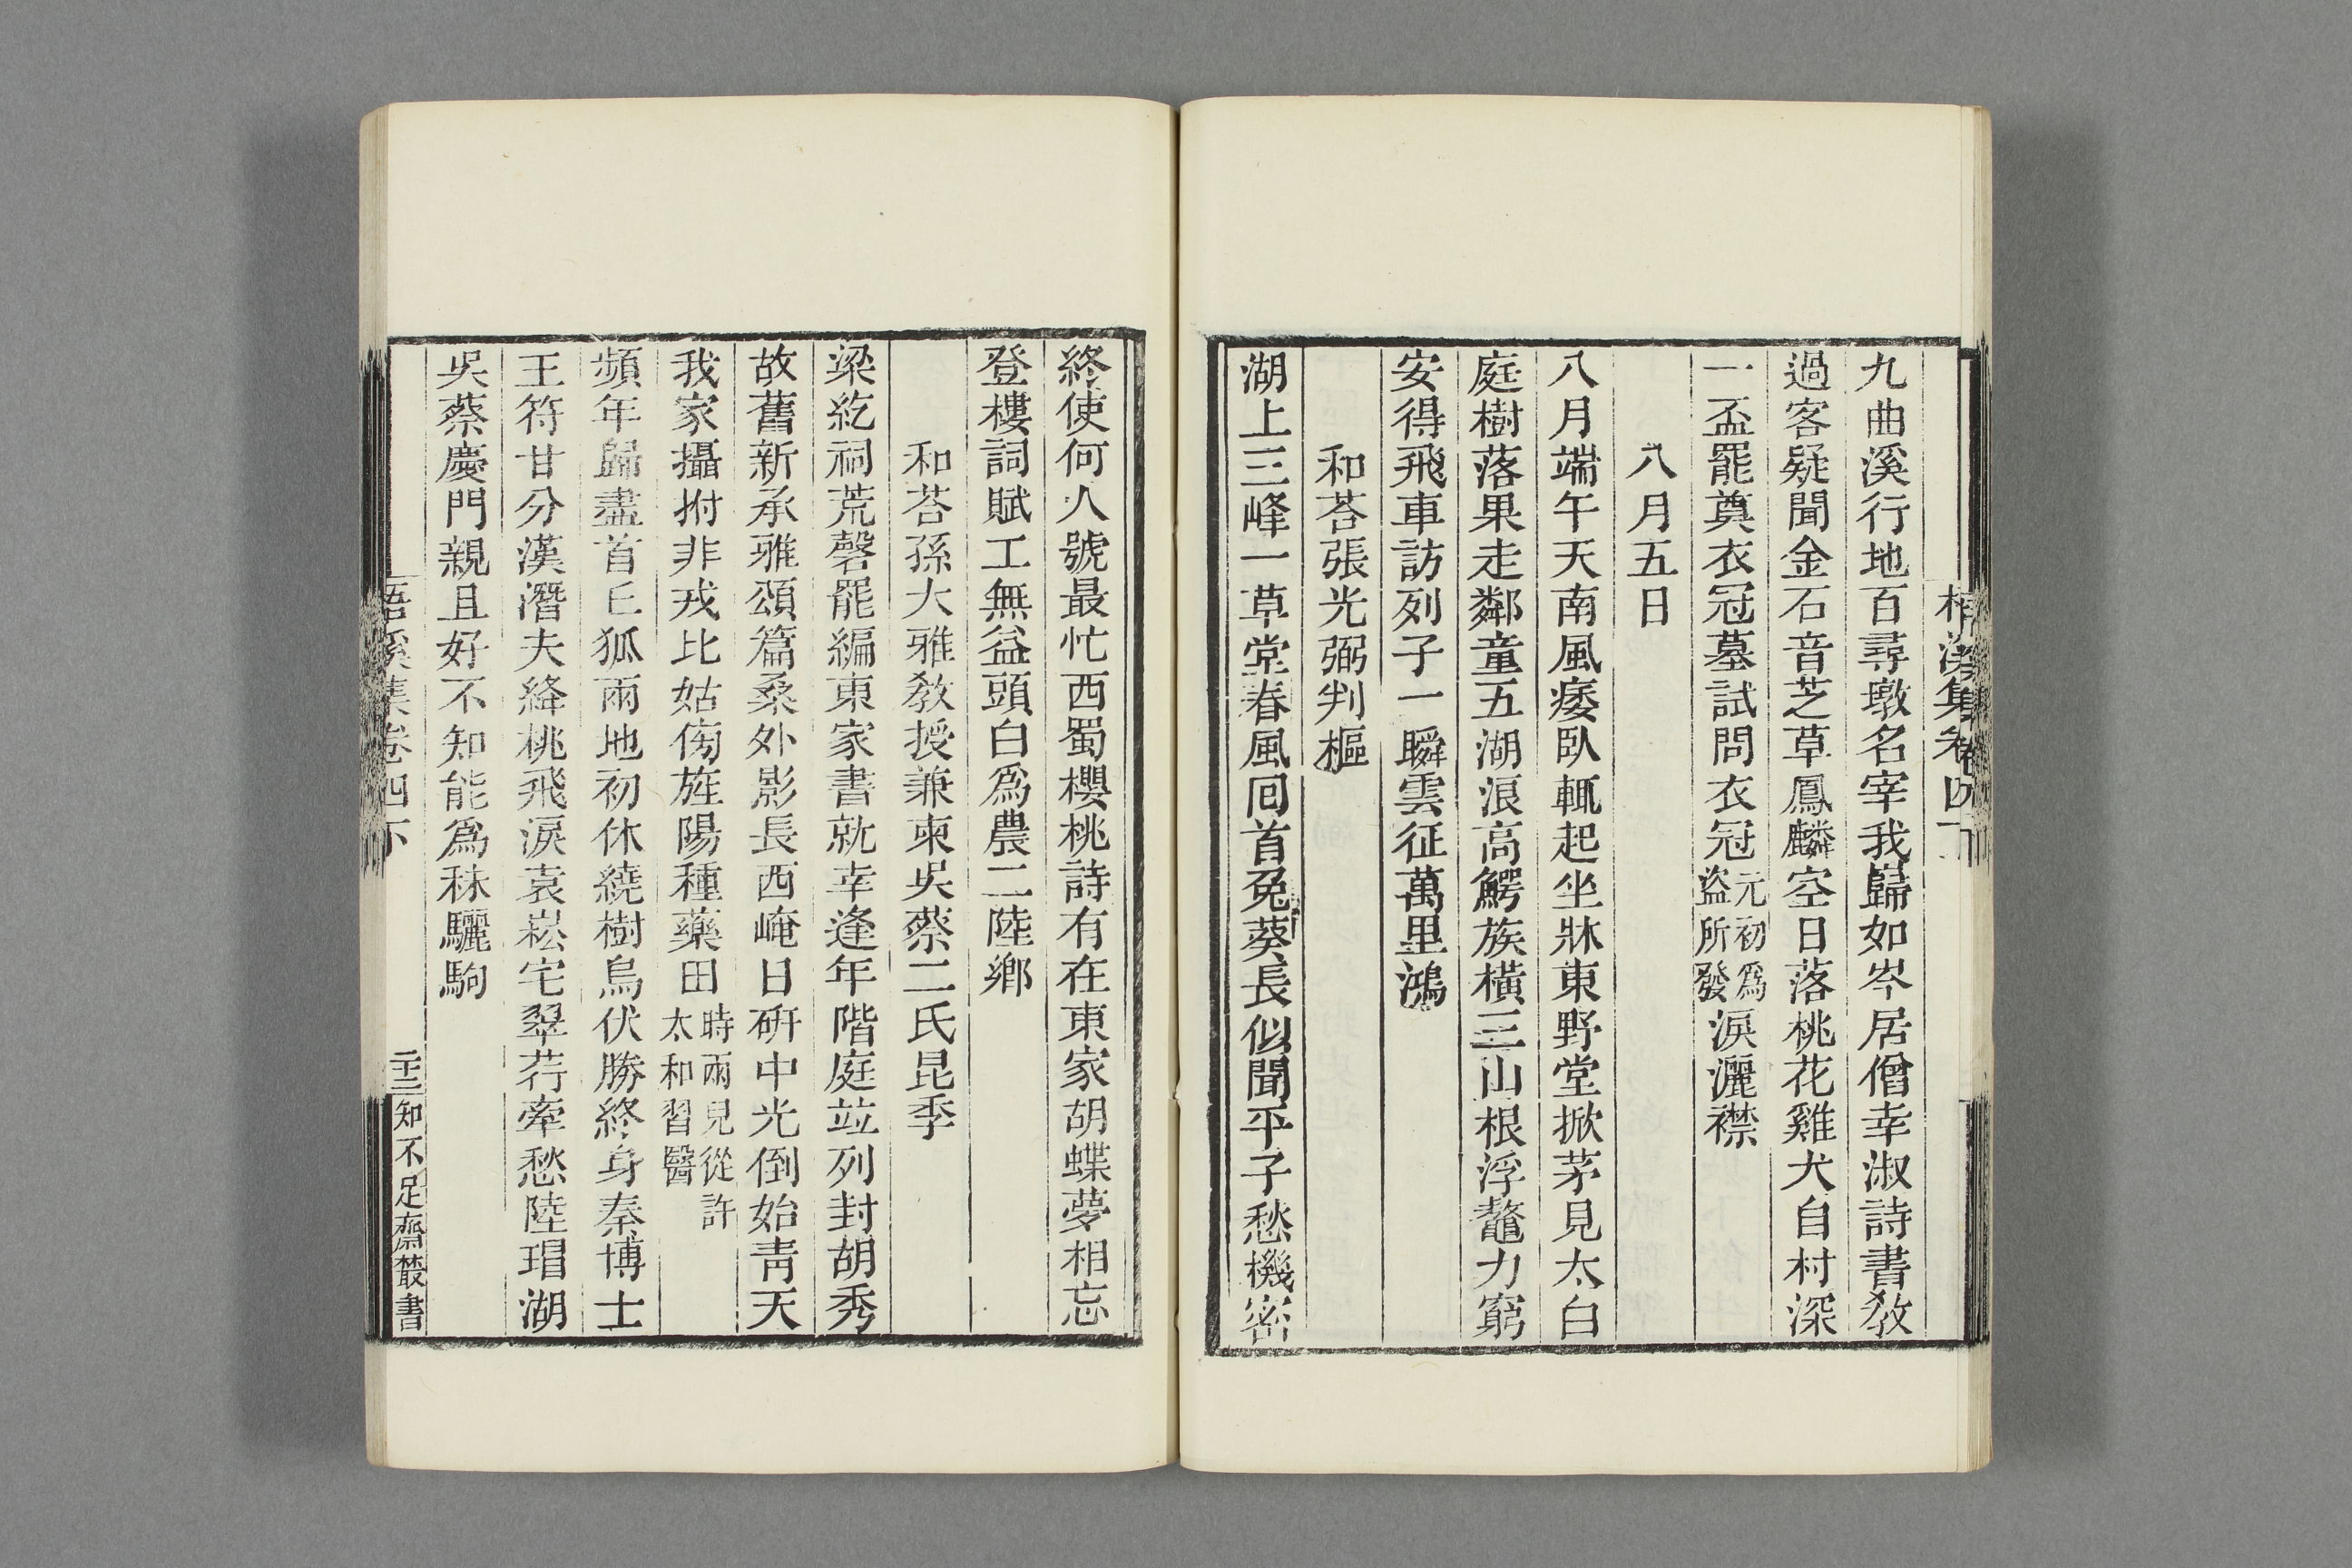 梧溪集卷四下
九曲溪行地百尋墩名宰我歸如岑居僧幸淑詩書敎
過客疑聞金石音芝草鳳麟空日落桃花雞犬自村深
一盃罷奠衣冠墓試問衣冠元初爲盜所發淚灑襟
八月五日
八月端午天南風痿臥輒起坐牀東野堂掀茅見太白
庭樹落果走鄰童五湖浪高鰐族橫三山根浮鼇力窮
安得飛車訪列子一瞬雲征萬里鴻
和荅張光弼判樞
湖上三峰一草堂春風回首兔葵長似聞平子愁機密
終使何人號最忙西蜀櫻桃詩有在東家胡蝶夢相忘
登樓詞賦工無益頭白爲農二陸鄉
和荅孫大雅敎授兼柬吳蔡二氏昆季
梁紇祠荒磬罷編東家書就幸逢年階庭竝列封胡秀
故舊新承雅頌篇桑外影長西崦日硏中光倒始靑天
我家攝拊非戎比姑傍旌陽種藥田時雨兒從許太和習醫
頻年歸盡首丘狐雨地初休繞樹烏伏勝終身秦博士
王符甘分漢潛夫絳桃飛淚袁崧宅翠荇牽愁陸瑁湖
吳蔡慶門親且好不知能爲秣驪駒
梧溪集卷四下
二十三
知不足齋叢書